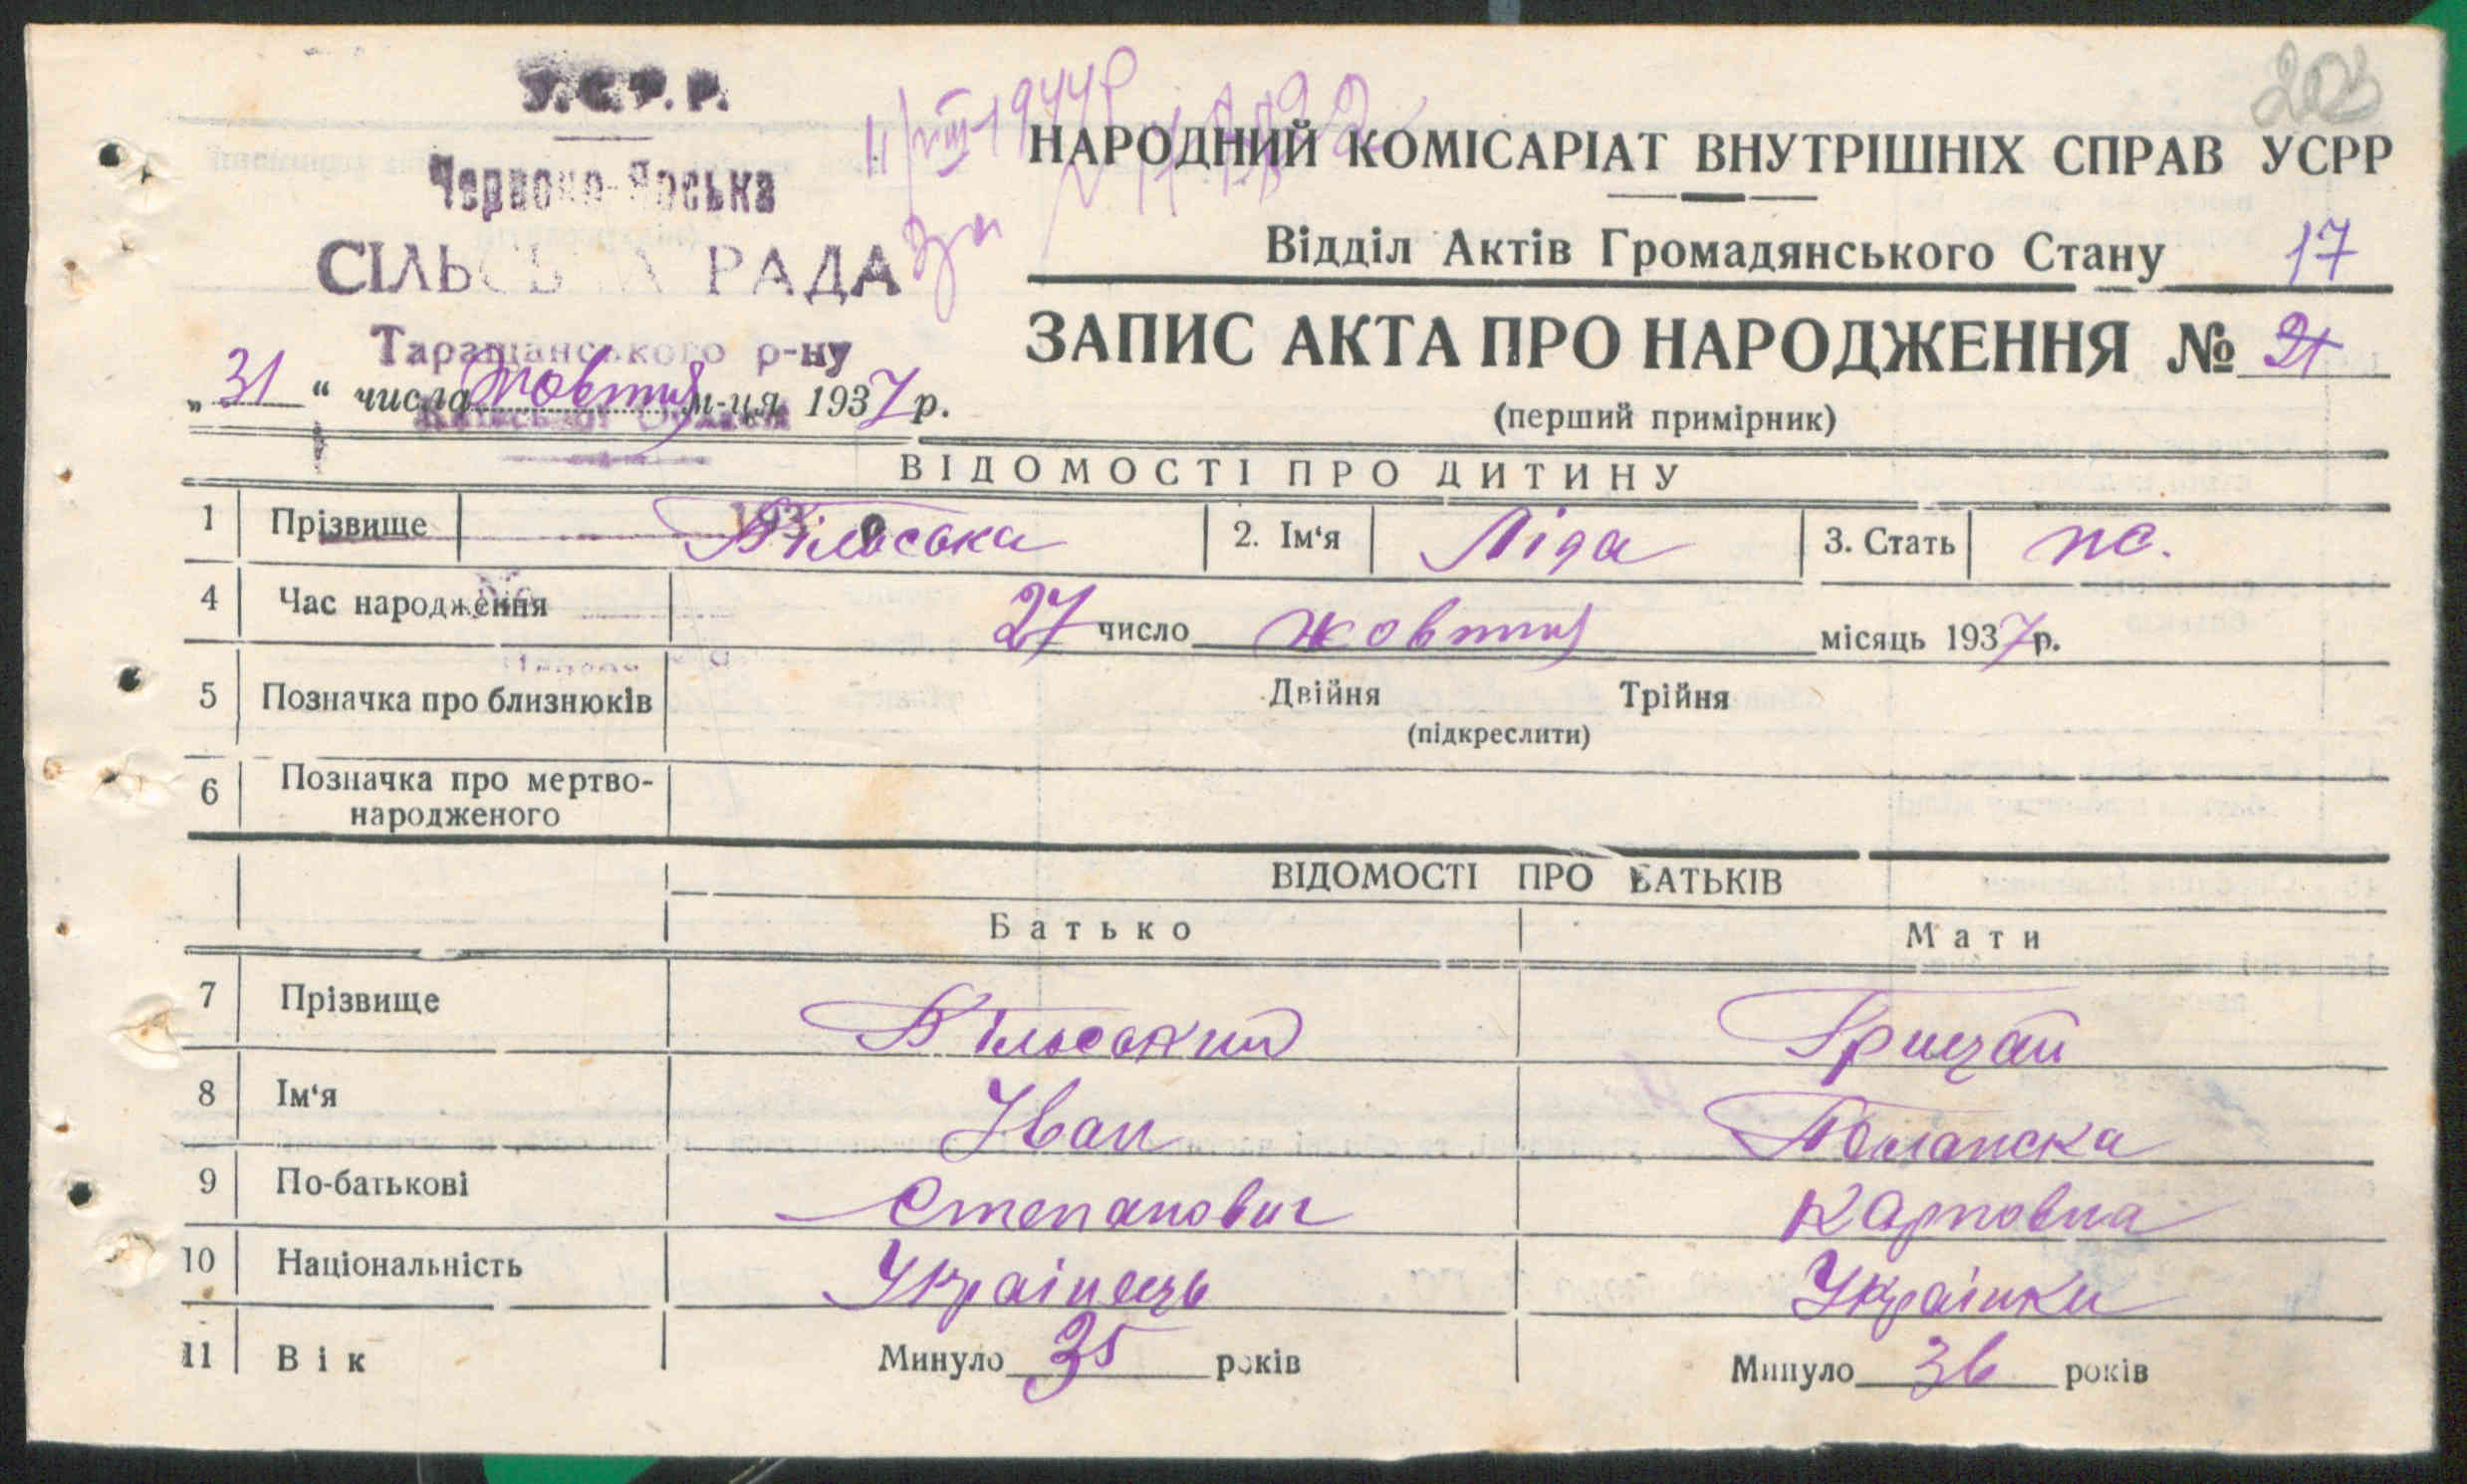 У.С.Р.Р.
Червоно-Ярська
СІЛЬСЬКА РАДА
Таращанського р-ну
Київської
„31“ числа жовтня м-ця 1937 р.
203
11/VIII 1944 р
НАРОДНИЙ КОМІСАРІАТ ВНУТРІШНІХ СПРАВ УСРР
Відділ Актів Громадянського Стану 17
ЗАПИС АКТА ПРО НАРОДЖЕННЯ № 21
(перший примірник)
ВІДОМОСТІ ПРО ДИТИНУ
1 Прізвище 193 Більська 2. Ім‘я Ліда 3. Стать жс.
4 Час народження № 27 число жовтня місяць 1937 р.
5 Позначка про близнюків Двійня Трійня
(підкреслити)
6 Позначка про мертво-
народженого
ВІДОМОСТІ ПРО БАТЬКІВ
Батько Мати
7 Прізвище Більський Грицай
8 Ім‘я Іван
9 По-батькові Степанович Карповна
10 Національність Українець Українка
11 Вік Минуло 35 років Минуло 36 років